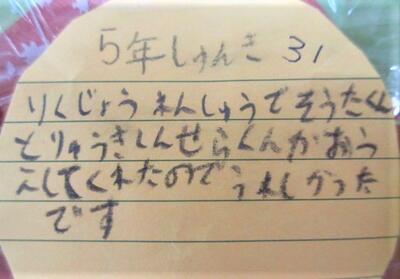 5年しゅんき 31
りくじょうれんしゅうでそうたくん
とりゅうきしんせらくんがおう
えしてくれたのでうれしかった
です